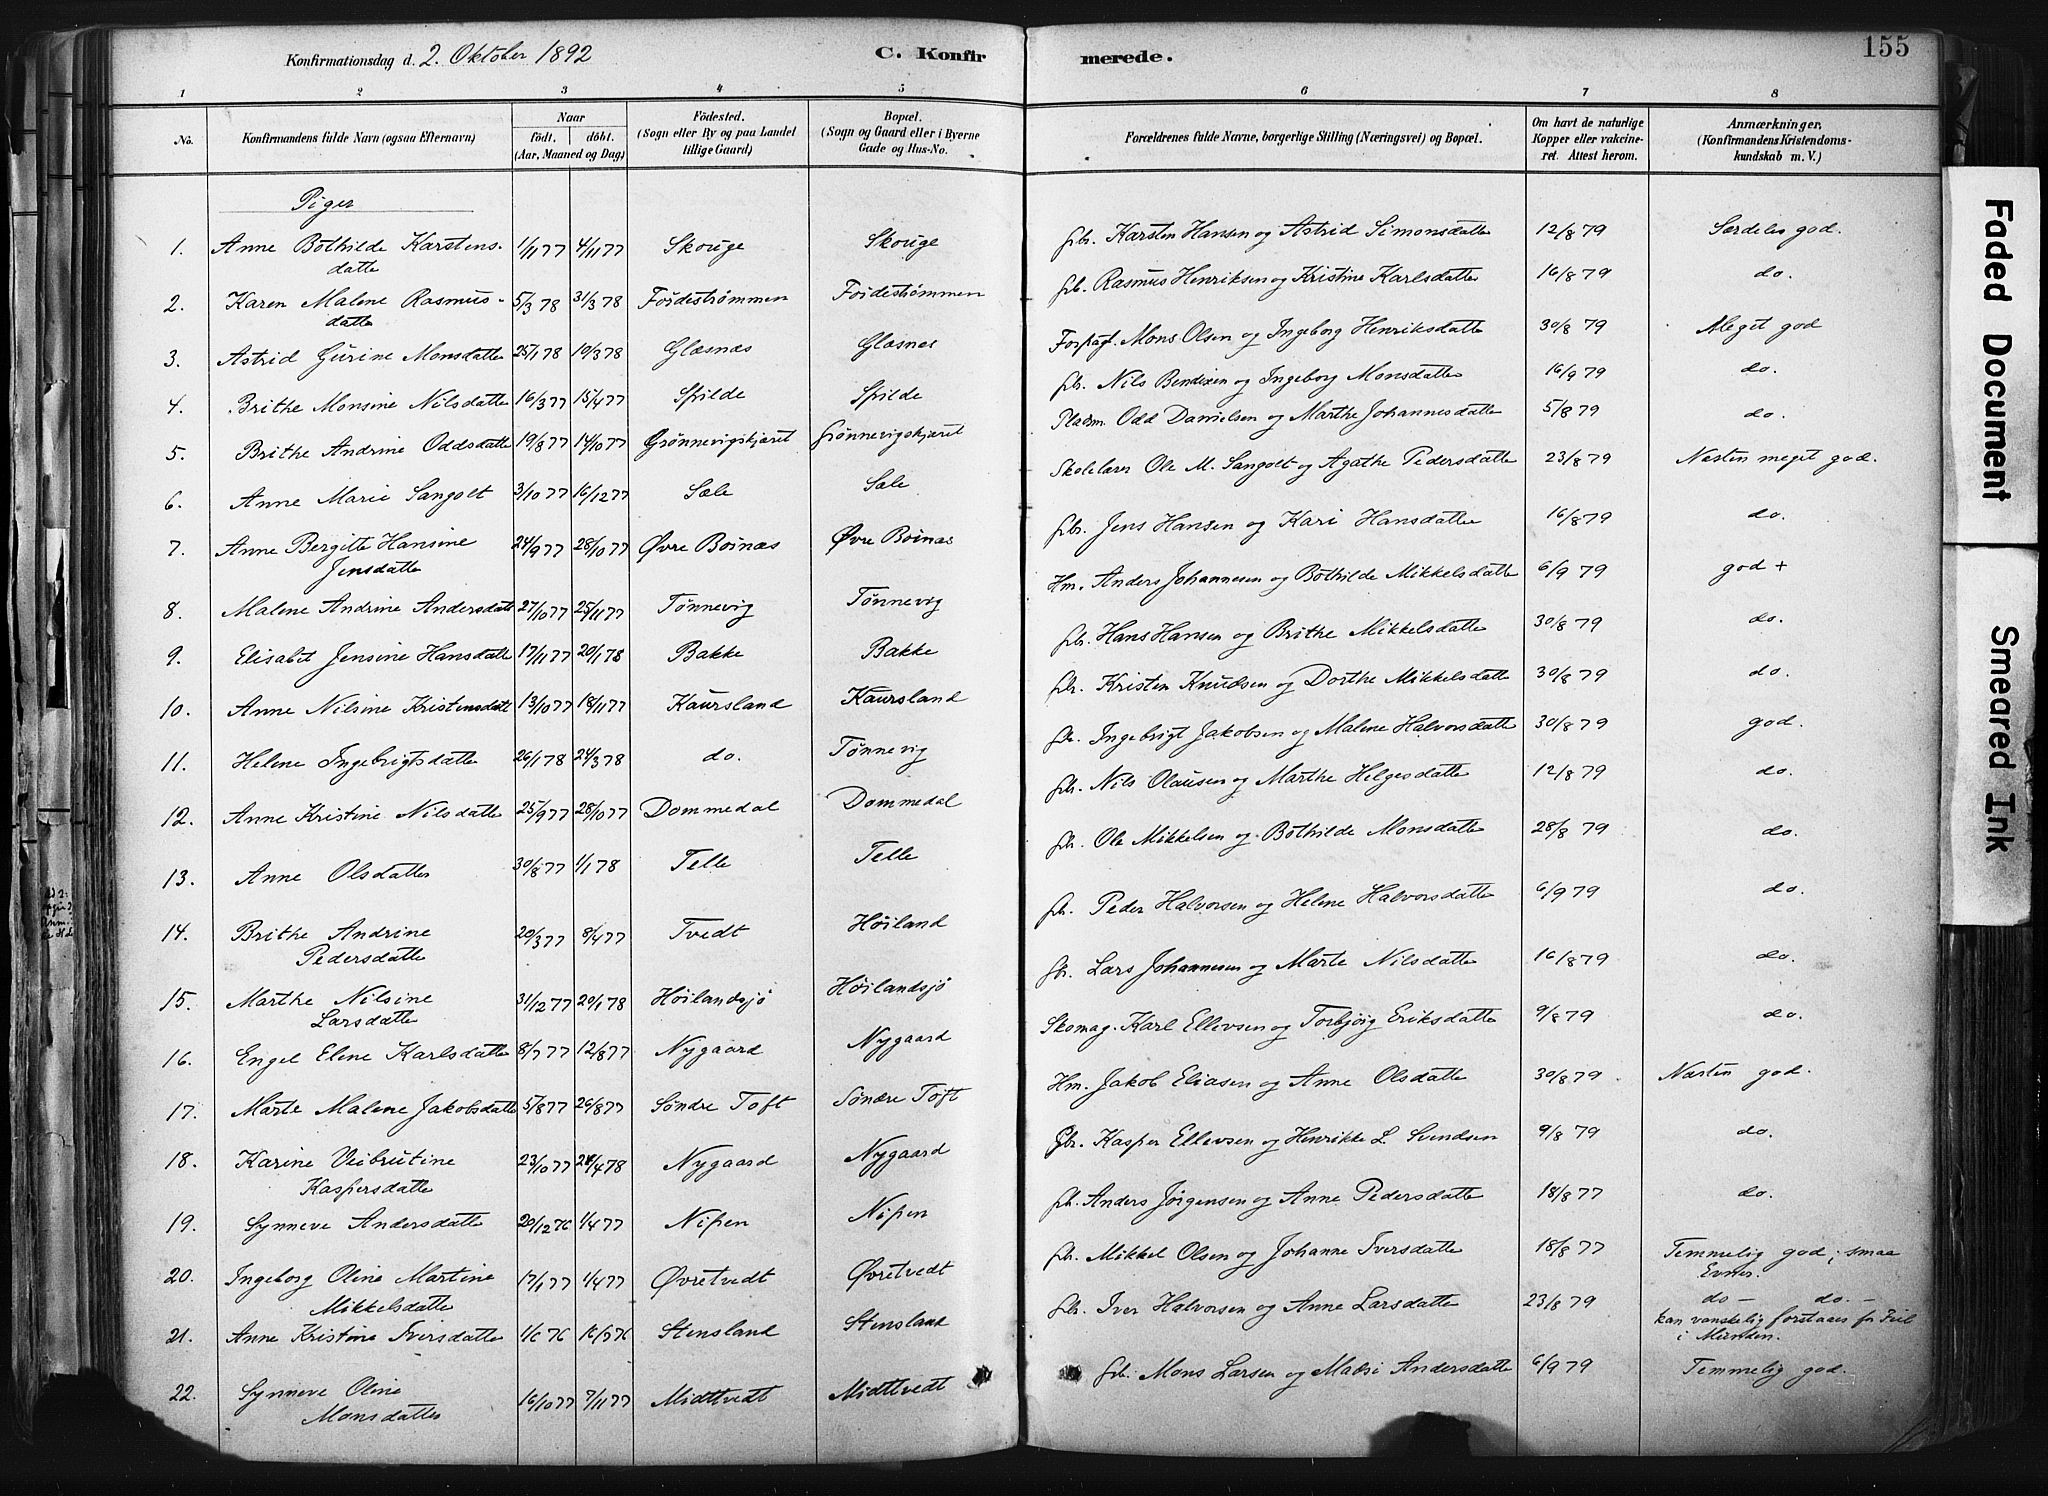 155
Konfirmationsdag d. 2. Oktober 1892 C. Konfirmerede.
1 2 3 4 5 6 7 8
No. Konfirmandens fulde Navn (ogsaa Efternavn) Naar født, døbt. (Aar, Maaned og Dag) Födested. (Sogn eller By og paa Landet tillige Gaard) Bopæl. (Sogn og Gaard eller i Byerne Gade og Hus-No. Forældrenes fulde Navne, borgerlige Stilling (Næringsvei) og Bopæl. Om havt de naturlige Kopper eller vakcineret. Attest herom. Anmærkninger, (Konfirmandens Kristendomskundskab m. V.)
Piger
1. Anne Bothilde Karstensdatter 1/11 77 4/11 77 Skouge Skouge gbr. Karsten Hansen og Astrid Simonsdatter 12/8 79 Særdeles god.
2. Karen Malene Rasmusdatter 5/3 78 31/3 78 Foidestrømmen Foidestrømmen gbr. Rasmus Henriksen og Kristine Karlsdatter 16/8 79 do.
3. Astrid Gurine Monsdatter 25/1 78 10/3 78 Glæsnæs Glæsnes Forpagt. Mons Olsen og Ingeborg Henriksdatter 30/8 79 Meget god
4. Brithe Monsine Nilsdatter 16/3 77 15/4 77 Spilde Spilde gbr. Nils Bendixen og Ingeborg Monsdatter 16/9 79 do.
5. Brithe Andrine Oddsdatter 19/8 77 14/10 77 Grønnevigskjæret Grønnevigskjæret Pladsm. Odd Danielsen og Marthe Johannesdatter 5/8 79 do.
6. Anne Marie Sangolt 3/10 77 16/12 77 Sæle Sæle Skolelærer Ole M. Sangolt og Agathe Pedersdatter 23/8 79 Næsten meget god.
7. Anne Bergitte Hansine Jensdatter 24/9 77 28/10 77 Øvre Boinæs Øvre Boinæs gbr. Jens Hansen og Kari Hansdatter 16/8 79 do.
8. Malene Andrine Andersdatt 27/10 77 25/11 77 Tønnevig Tønnevig Hm. Anders Johannesen og Bothilde Mikkelsdatter 6/9 79 god +
9. Elisabet Jensine Hansdatter 17/11 77 20/1 78 Bakke Bakke gbr. Hans Hansen og Brithe Mikkelsdatter 30/8 79 do.
10. Anne Nilsine Kristensdatt 13/10 77 18/11 77 Kaursland Kaursland gbr. Kristen Knudsen og Dorthe Mikkelsdatter 30/8 79 do.
11. Helene Ingebrigtsdatter 26/1 78 24/3 78 do. Tønnevig gbr. Ingebrigt Jakobsen og Malene Halvorsdatter 30/8 79 god.
12. Anne Kristine Nilsdatter 25/9 77 28/10 77 Dommedal Dommedal gbr. Nils Olausen og Marthe Helgesdatter 12/8 79 do.
13. Anne Olsdatter 30/8 77 1/1 78 Telle Telle gbr. Ole Mikkelsen og Bothilde Monsdatter 28/8 79 do.
14. Brithe Andrine Pedersdatter 20/3 77 8/4 77 Tvedt Høiland gbr. Peder Halvorsen og Helene Halvorsdatter 6/9 79 do.
15. Marthe Nilsine Larsdatter 31/12 77 20/1 78 Høilandsjö Høilandsjö gbr. Lars Johannesen og Marte Nilsdatter 16/8 79 do.
16. Engel Eline Karlsdatter 8/7 77 12/8 77 Nygaard Nygaard Skomag. Karl Ellevsen og Torbjörg Eriksdatter 9/8 79 do.
17. Marte Malene Jakobsdatter 5/8 77 26/8 77 Söndre Toft Söndre Toft Hm. Jakob Eliasen og Anne Olsdatter 30/8 79 Næsten god.
18. Karine Veibrutine Kaspersdatter 23/10 77 24/4 78 Nygaard Nygaard Gbr. Kasper Ellevsen og Henrikke L Svendsen 9/8 79 do.
19. Synneve Andersdatter 20/12 76 1/4 77 Nipen Nipen gbr. Anders Jörgensen og Anne Pedersdatter 18/8 77 do.
20. Ingeborg Oline Martine Mikkelsdatter 17/1 77 1/4 77 Øvretvedt Øvretvedt gbr. Mikkel Olsen og Johanne Iversdatter 18/8 77 Temmelig god; smaa Evner.
21. Anne Kristine Iversdatter 1/6 76 Stensland Stensland gbr. Iver Halvorsen og Anne Larsdatter 23/8 79 do - do. - kan vanskelig forstaaes fr Feil i Munden.
22. Synneve Oline Monsdatter 16/10 77 7/11 77 Midttvedt Midttvedt gbr. Mons Larsen og Madsi Andersdatter 6/9 79 Temmelig god.
Faded Document
Smeared Ink